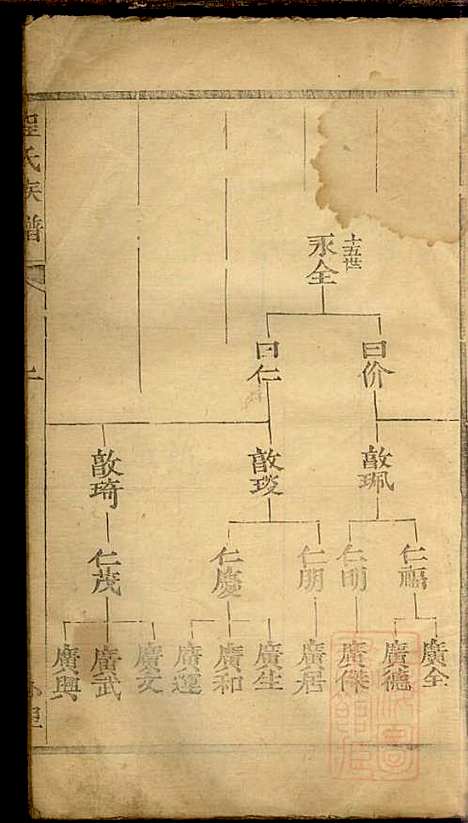 十五世
永全
曰价
曰仁
敬珮
敬琰
敬琦
仁福
仁明
仁朋
仁慶
仁茂
廣全
廣德
廣傑
廣居
廣生
廣和
廣運
廣文
廣武
廣興
程氏族譜